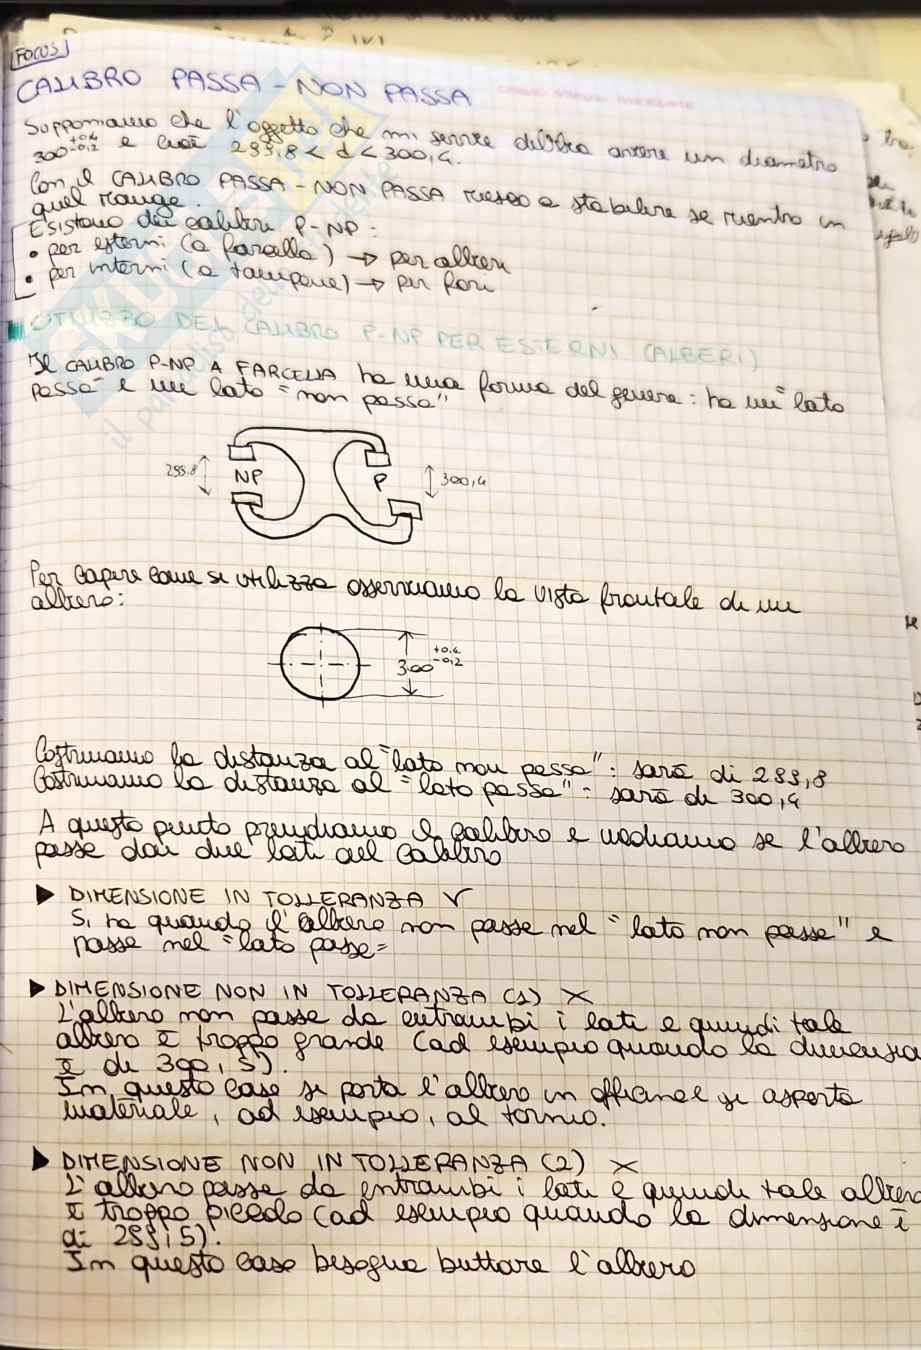 FOCUS
CALIBRO PASSA - NON PASSA
Supponiamo che l'oggetto che mi serve debba avere un diametro
300 +0,4 -0,2 e cioè 299,8 < d < 300,4.
Con il CALIBRO PASSA - NON PASSA riesco a stabilire se rientro in
quel range.
Esistono dei calibri P-NP:
• per esterni (a forcella) → per alberi
• per interni (a tampone) → per fori
UTILIZZO DEL CALIBRO P-NP PER ESTERNI (ALBERI)
Il CALIBRO P-NP A FORCELLA ha una forma del genere: ha un "lato
passa" e un lato "non passa"
299,8 NP P 300,4
Per capire come si utilizza osserviamo la vista frontale di un
albero:
300 +0,4 -0,2
Costruiamo la distanza al "lato non passa": sarà di 299,8
Costruiamo la distanza al "lato passa": sarà di 300,4
A questo punto prendiamo il calibro e vediamo se l'albero
passa dai due lati del calibro
▶ DIMENSIONE IN TOLLERANZA V
Si ha quando l'albero non passa nel "lato non passa" e
passa nel "lato passa"
▶ DIMENSIONE NON IN TOLLERANZA (1) X
L'albero non passa da entrambi i lati e quindi tale
albero è troppo grande (ad esempio quando la dimensione
è di 300,5).
In questo caso si porta l'albero in officina e si asporta
materiale, ad esempio, al tornio.
▶ DIMENSIONE NON IN TOLLERANZA (2) X
L'albero passa da entrambi i lati e quindi tale albero
è troppo piccolo (ad esempio quando la dimensione è
di 299,5).
In questo caso bisogna buttare l'albero